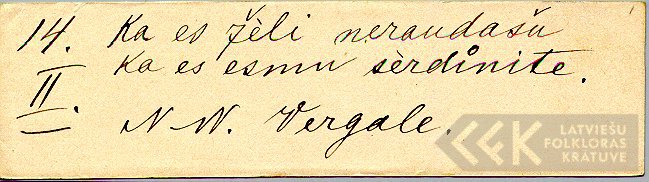 14. Ka es žèli neraudašu
II. Ka es esmu sèrdůnite.
N N. Vergale.
LFK LATVIEŠU
FOLKLORAS
KRĀTUVE